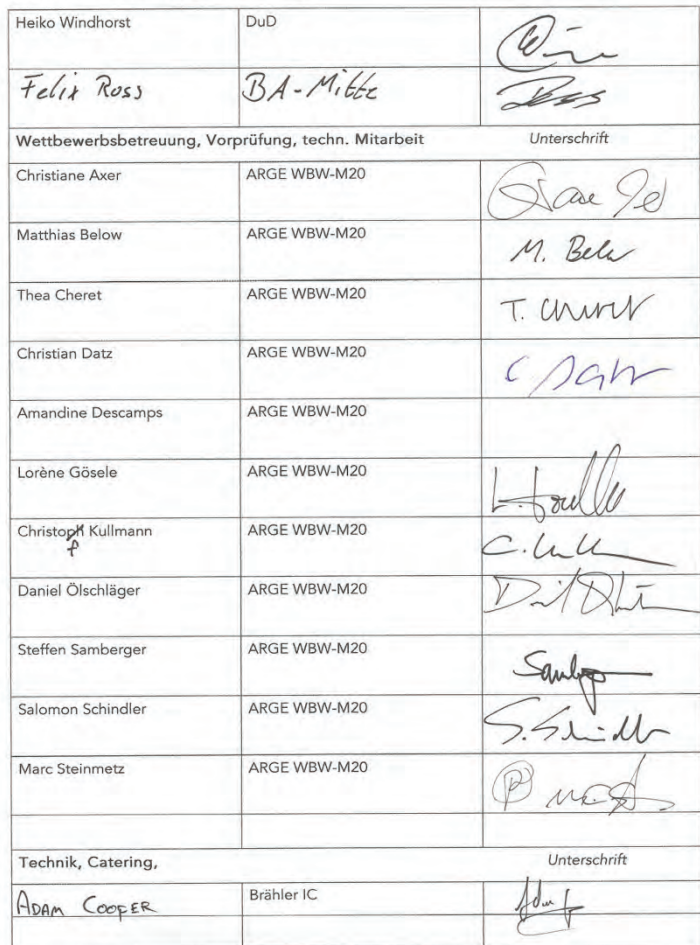 Heiko Windhorst DuD
Felix Ross BA-Mitte
Wettbewerbsbetreuung, Vorprüfung, techn. Mitarbeit Unterschrift
Christiane Axer ARGE WBW-M20
Matthias Below ARGE WBW-M20 M. Below
Thea Cheret ARGE WBW-M20 T. Cheret
Christian Datz ARGE WBW-M20 C Datz
Amandine Descamps ARGE WBW-M20
Lorène Gösele ARGE WBW-M20
Christoph Kullmann ARGE WBW-M20
f
Daniel Ölschläger ARGE WBW-M20
Steffen Samberger ARGE WBW-M20
Salomon Schindler ARGE WBW-M20 S. Schindler
Marc Steinmetz ARGE WBW-M20
Technik, Catering, Unterschrift
ADAM COOPER Brähler IC